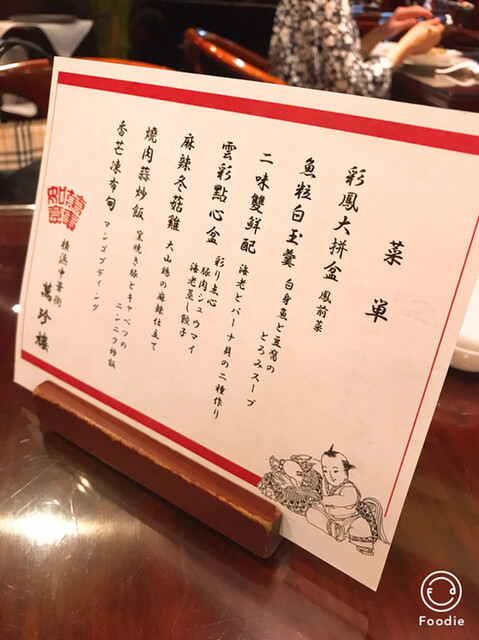 菜単
彩鳳大拼盆 鳳前菜
魚粒白玉羹 白身魚と豆腐の
とろみスープ
二味雙鮮配 海老とパーナ貝の二種作り
雲彩點心盆 彩り点心
豚肉シュウマイ
海老蒸し餃子
麻辣冬菇雞 大山鶏の麻辣仕立て
燒肉蒜炒飯 窯焼き豚とキャベツの
ニンニク炒飯
香芒凍布甸 マンゴプディング
横浜中華街 萬珍樓
萬事如意
Foodie